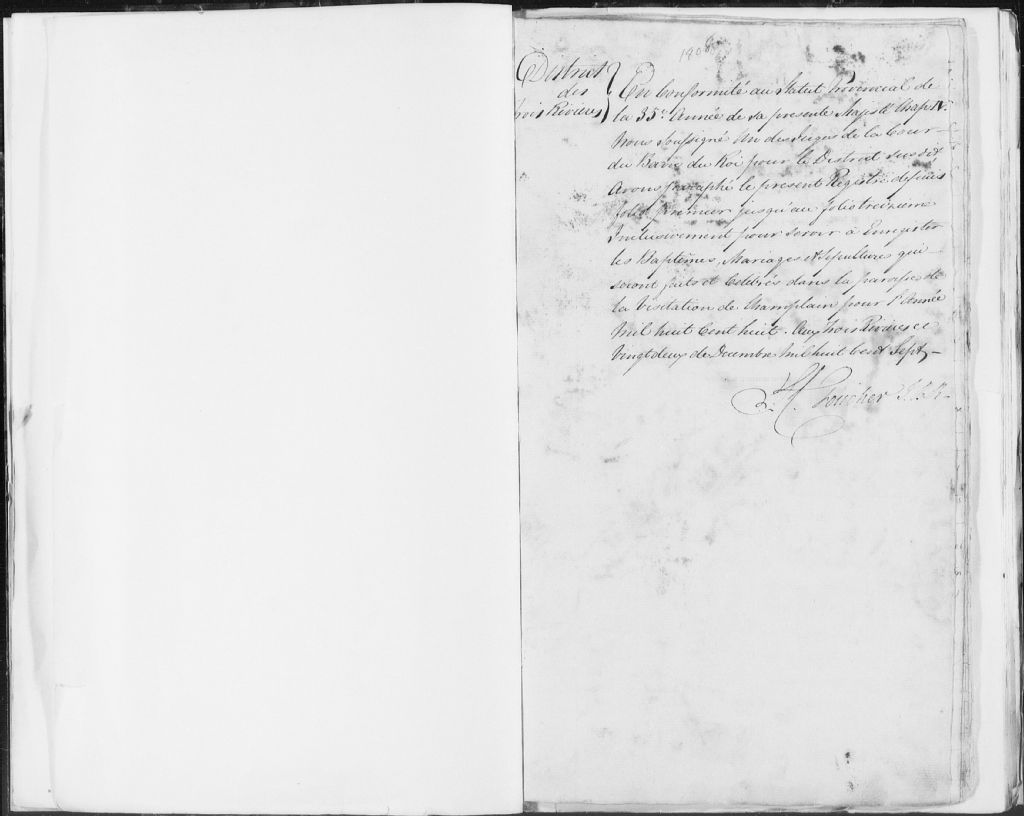 1808
District
des
Trois Rivieres
En Conformité au Statut Provincial de
la 35e. Année de Sa presente Majesté Chap. IV.
Nous Soussigné un des Juges de la Cour
du Banc du Roi pour le District susdit
Avons paraphé le present Registre depuis
folio premier jusqu'au folio treizieme
Inclusivement pour servir à Enregistrer
les Baptêmes, Mariages et Sepultures qui
seront faits et Célébrés dans la paroisse de
la Visitation de Champlain pour l'Année
Mil huit Cent huit. Aux Trois Rivieres ce
Vingt deux de Decembre Mil huit Cent Sept